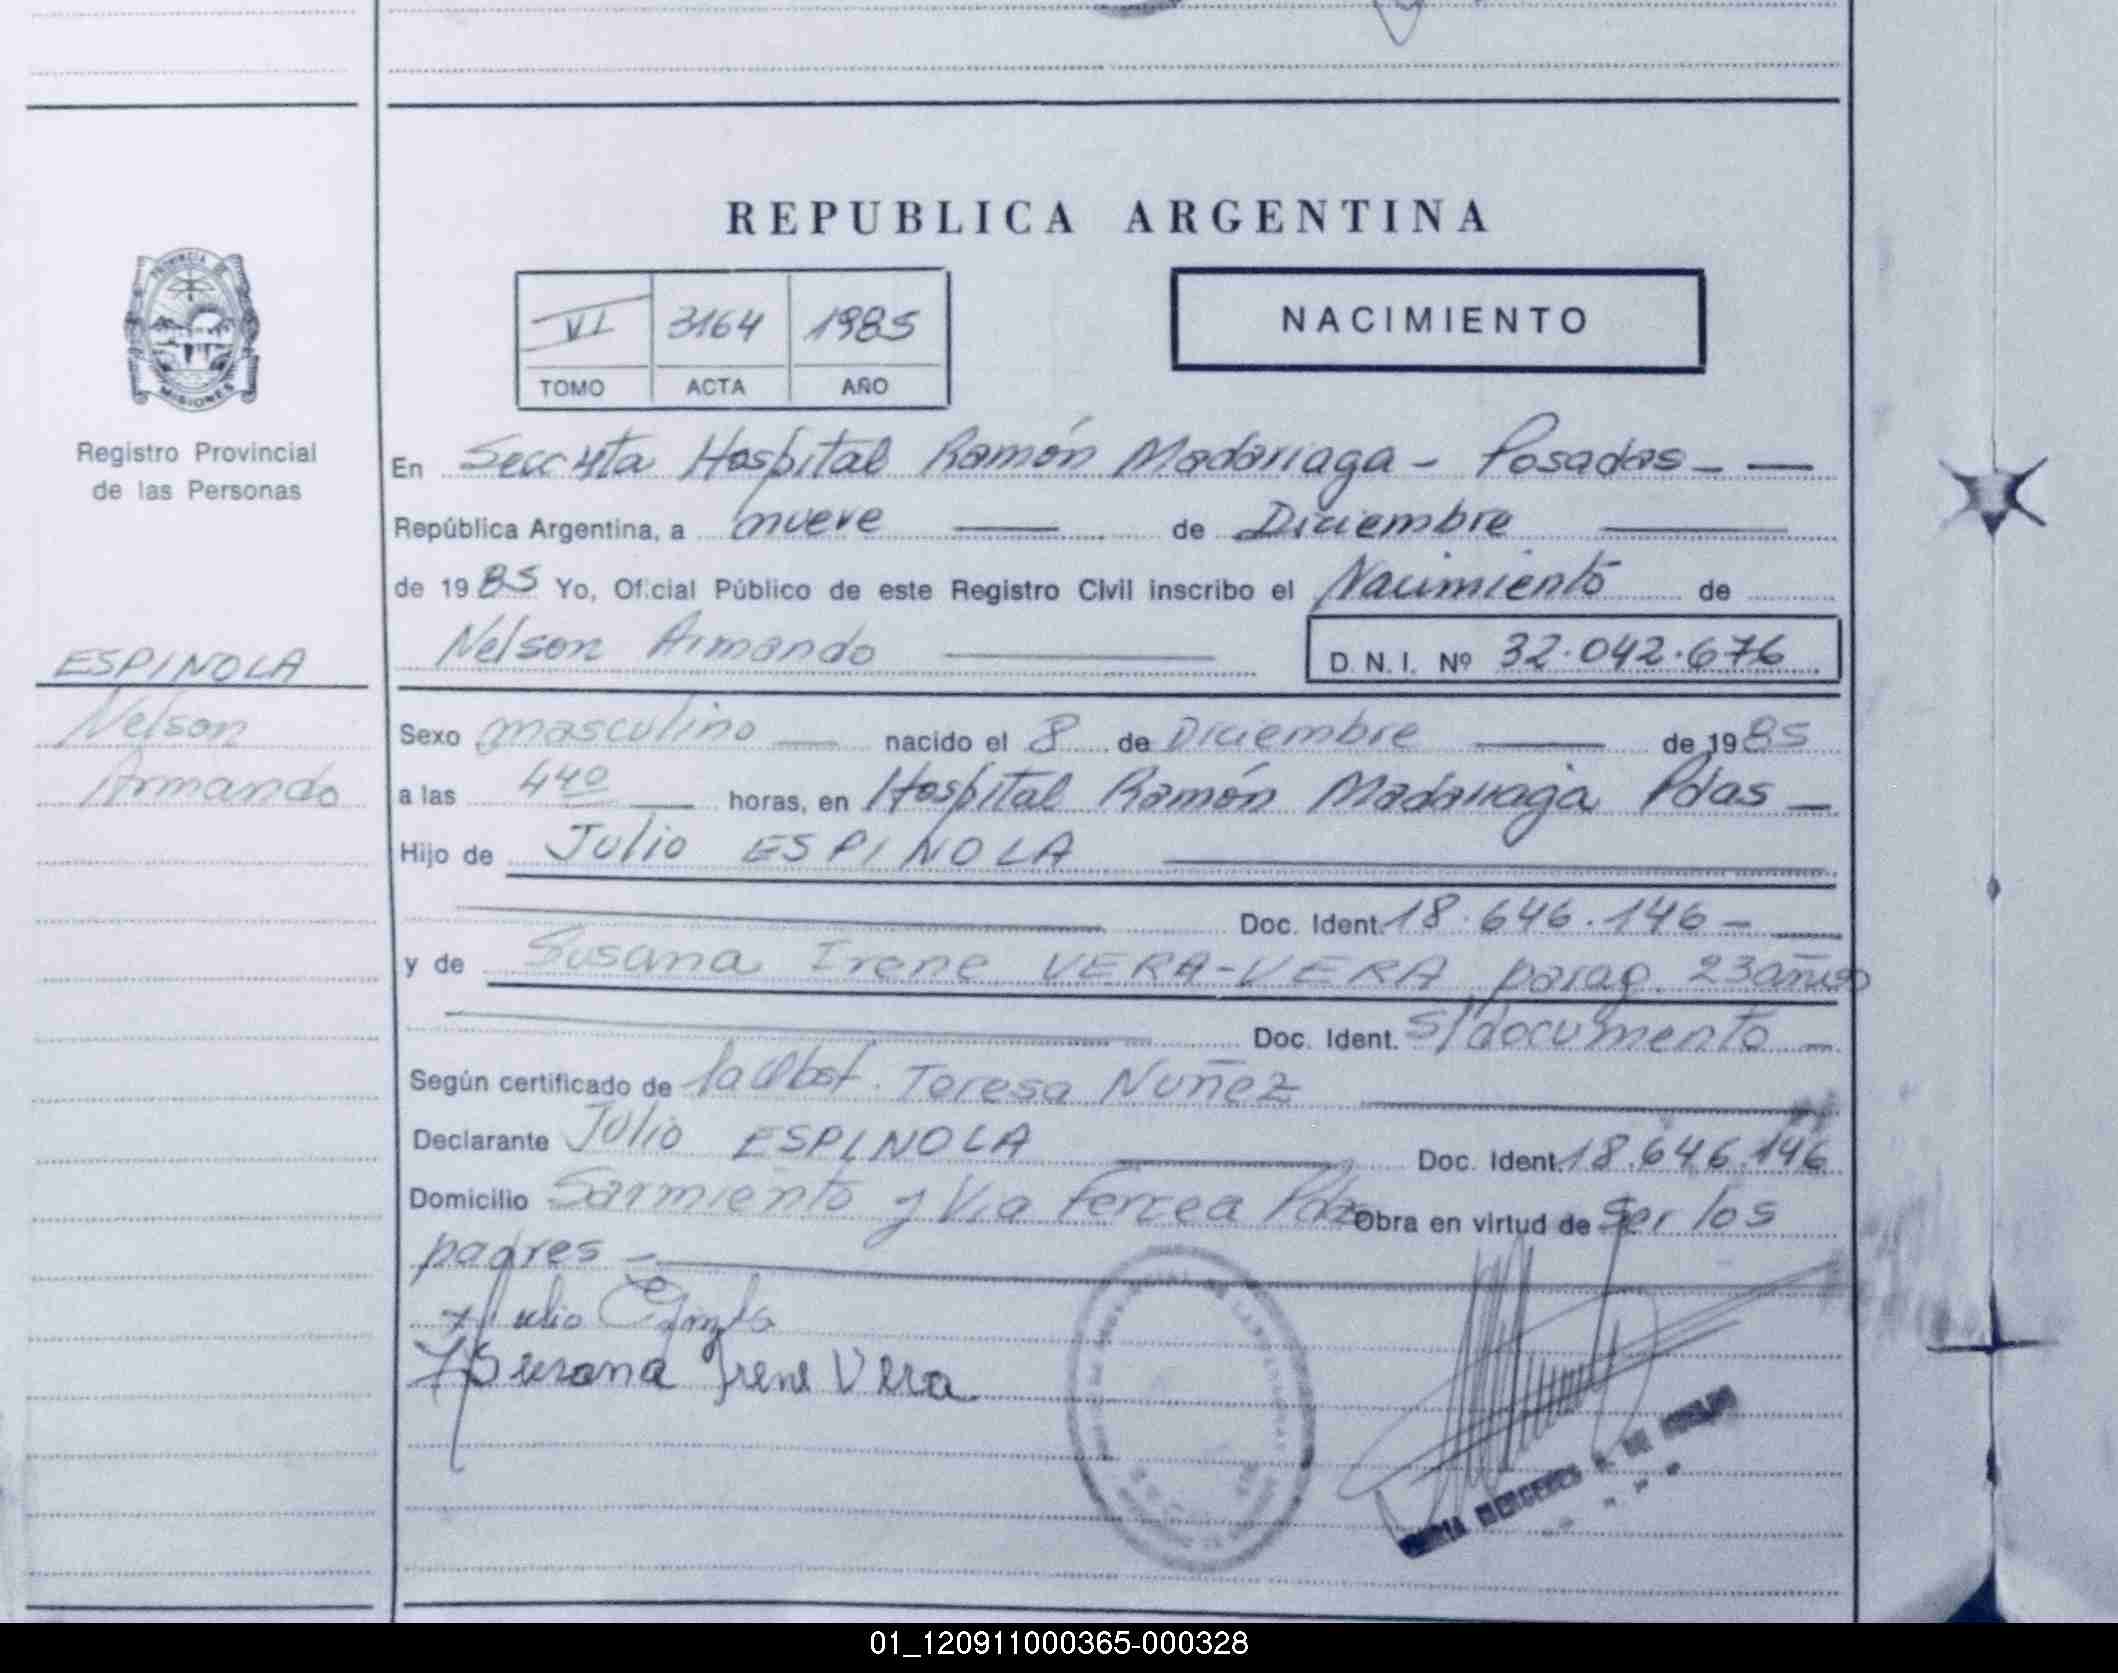 REPUBLICA ARGENTINA
PROVINCIA DE
MISIONES
Registro Provincial
de las Personas
VI 3164 1985
TOMO ACTA AÑO
NACIMIENTO
En Secc 4ta Hospital Ramón Madariaga - Posadas -
República Argentina, a nueve de Diciembre
de 1985 Yo, Oficial Público de este Registro Civil inscribo el Nacimiento de
Nelson Armando D. N. I. Nº 32.042.676
ESPINOLA
Nelson
Armando
Sexo masculino nacido el 8 de Diciembre de 1985
a las 4 40 horas, en Hospital Ramón Madariaga Pdas -
Hijo de Julio ESPINOLA
Doc. Ident. 18.646.146 -
y de Susana Irene VERA-VERA parag. 23 años
Doc. Ident. S/documento -
Según certificado de la Obst. Teresa Nuñez
Declarante Julio ESPINOLA Doc. Ident. 18.646.146
Domicilio Sarmiento y Via Ferrea Pdas Obra en virtud de ser los
padres -
Julio
Susana Irene Vera
MARIA MERCEDES
01_120911000365-000328